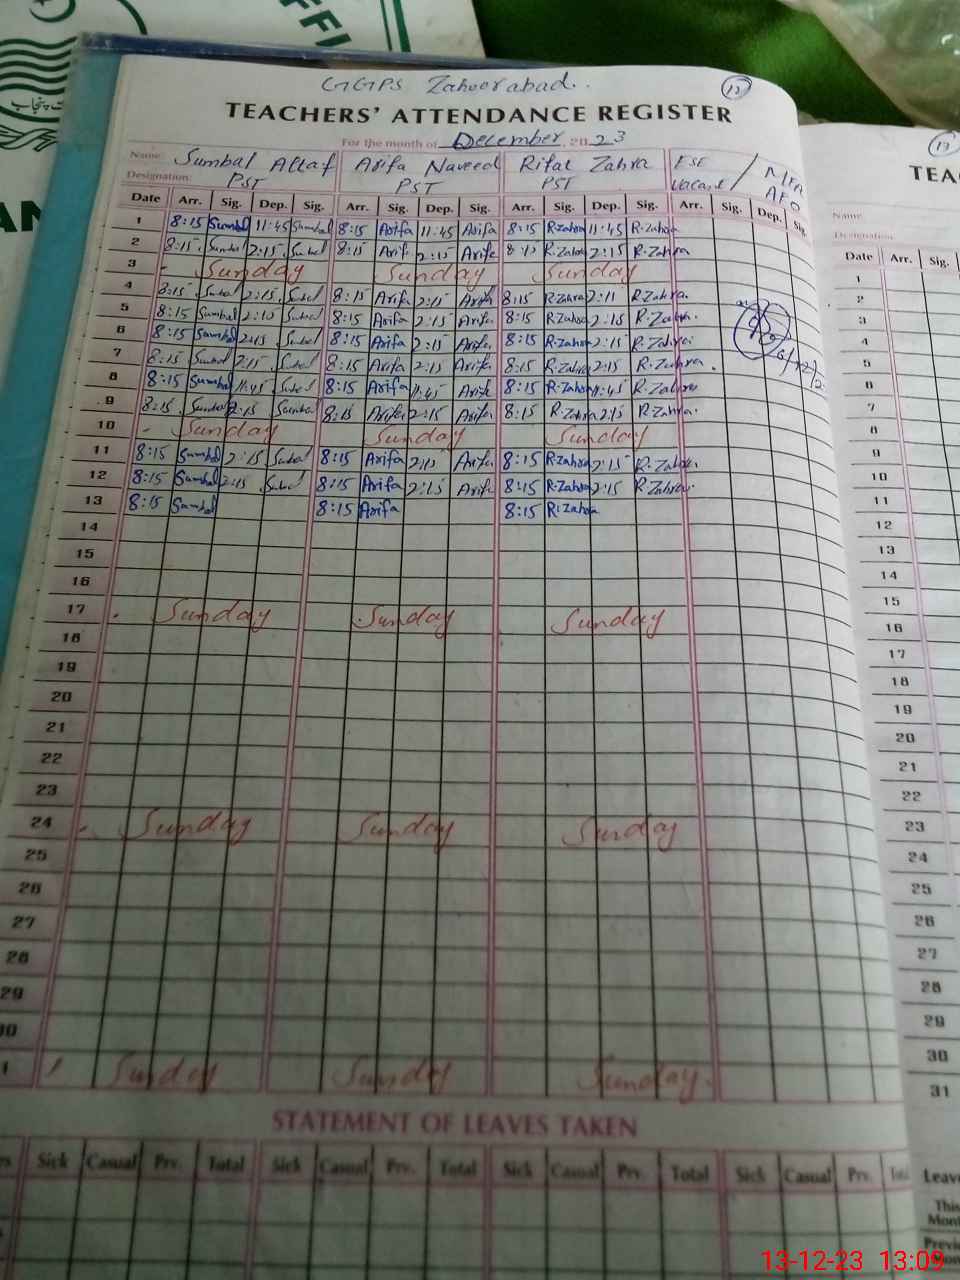 GGPS Zaheerabad.
12
TEACHERS' ATTENDANCE REGISTER
For the month of December, 2023
Name: Sumbal Altaf Arifa Naveed Rifat Zahra ESE
Designation: PST PST PST Vacant / MEA AEO
Date Arr. Sig. Dep. Sig. Arr. Sig. Dep. Sig. Arr. Sig. Dep. Sig. Arr. Sig. Dep. Sig.
1 8:15 Sumbal 11:45 Sumbal 8:15 Arifa 11:45 Arifa 8:15 R.Zahra 11:45 R.Zahra
2 8:15 Sumbal 2:15 Sumbal 8:15 Arifa 2:15 Arifa 8:15 R.Zahra 2:15 R.Zahra
3 Sunday Sunday Sunday
4 8:15 Sumbal 2:15 Sumbal 8:15 Arifa 2:15 Arifa 8:15 R.Zahra 2:15 R.Zahra
5 8:15 Sumbal 2:15 Sumbal 8:15 Arifa 2:15 Arifa 8:15 R.Zahra 2:15 R.Zahra
6 8:15 Sumbal 2:15 Sumbal 8:15 Arifa 2:15 Arifa 8:15 R.Zahra 2:15 R.Zahra
7 8:15 Sumbal 2:15 Sumbal 8:15 Arifa 2:15 Arifa 8:15 R.Zahra 2:15 R.Zahra
8 8:15 Sumbal 11:45 Sumbal 8:15 Arifa 11:45 Arifa 8:15 R.Zahra 11:45 R.Zahra
9 8:15 Sumbal 2:15 Sumbal 8:15 Arifa 2:15 Arifa 8:15 R.Zahra 2:15 R.Zahra
10 Sunday Sunday Sunday
11 8:15 Sumbal 2:15 Sumbal 8:15 Arifa 2:15 Arifa 8:15 R.Zahra 2:15 R.Zahra
12 8:15 Sumbal 2:15 Sumbal 8:15 Arifa 2:15 Arifa 8:15 R.Zahra 2:15 R.Zahra
13 8:15 Sumbal 8:15 Arifa 8:15 R.Zahra
14
15
16
17 Sunday Sunday Sunday
18
19
20
21
22
23
24 Sunday Sunday Sunday
25
26
27
28
29
30
1 Sunday Sunday Sunday.
STATEMENT OF LEAVES TAKEN
Sick Casual Prv. Total Sick Casual Prv. Total Sick Casual Prv. Total Sick Casual Prv.
13
TEA
Name
Designation:
Date Arr. Sig.
1
2
3
4
5
6
7
8
9
10
11
12
13
14
15
16
17
18
19
20
21
22
23
24
25
26
27
28
29
30
31
Leave
This
Month
13-12-23 13:09